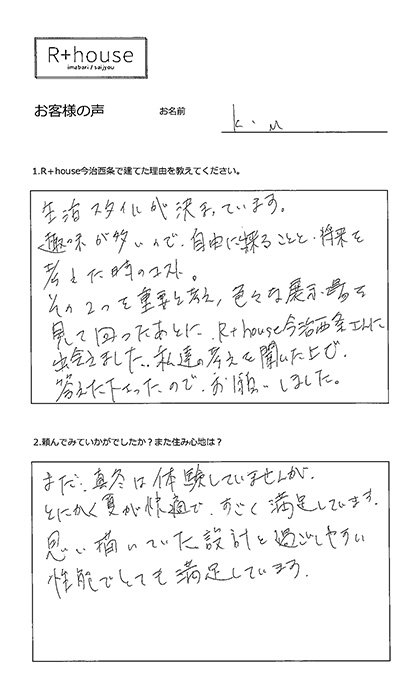 R+house
imabari / saijyou
お客様の声
お名前
k.u
1.R+house今治西条で建てた理由を教えてください。
生活スタイルが決まっています。
趣味が多いので、自由に操ることと、将来を
考えた時のコスト。
その2つを重要と考え、色々な展示場を
見て回ったあとに、R+house今治西条さんに
出会えました。私達の考えを聞いた上で、
答えた下さったので、お願いしました。
2.頼んでみていかがでしたか？また住み心地は？
まだ、真冬は体験していませんが、
とにかく夏が快適で、すごく満足しています。
思い描いていた設計と過ごしやすい
性能でとても満足しています。